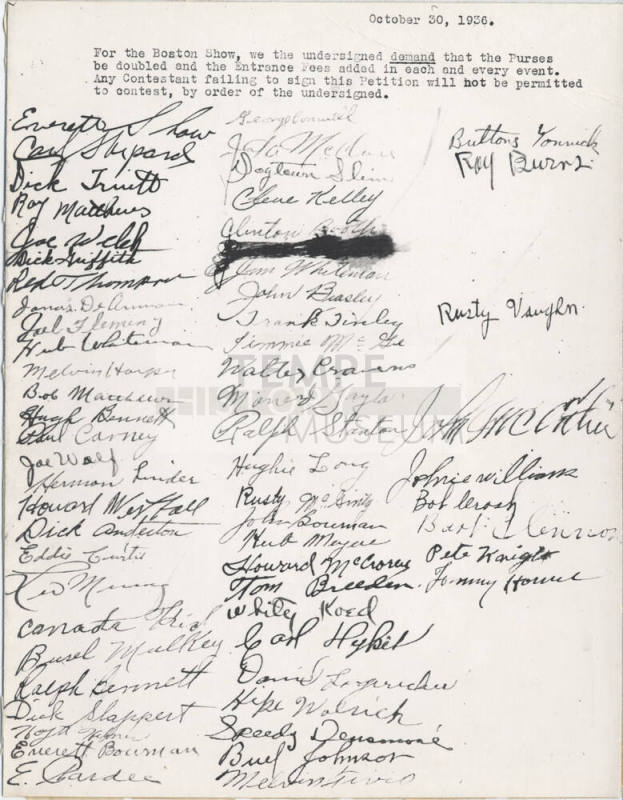 October 30, 1936.
For the Boston Show, we the undersigned demand that the Purses
be doubled and the Entrance Fees added in each and every event.
Any Contestant failing to sign this Petition will not be permitted
to contest, by order of the undersigned.
Everett Shaw
Carl Shepard
Dick Truitt
Roy Matthews
Joe Welch
Dick Griffith
Red Thompson
Jonas DeArman
Joel Fleming
Hub Whiteman
Melvin Harper
Bob Matthews
Hugh Bennett
Paul Carney
Joe Wolf
Herman Linder
Howard Westfall
Dick Anderton
Eddie Curtis
Canada Kid
Burel Mulkey
Ralph Bennett
Dick Slappert
Everett Bowman
E. Pardee
Jake McClure
Dogtown Slim
Clene Kelley
Clinton Booth
Jim Whiteman
John Beasley
Frank Finley
Jimmie McGee
Walter Cravens
Maynard Gaylor
Ralph Stanton
Hughie Long
Rusty McGinty
John Bowman
Herb Meyers
Howard McCrorey
Tom Breeden
Whitey Koed
Carl Hykil
Hike Wolrich
Speedy Densmore
Buel Johnson
Melvin Tivis
Buttons Yonnick
Roy Burns
Rusty Vaughn
John McEntire
Johnie Williams
Bob Crosby
Bart Clennon
Pete Knight
Tommy Horne
TEMPE
MUSEUM